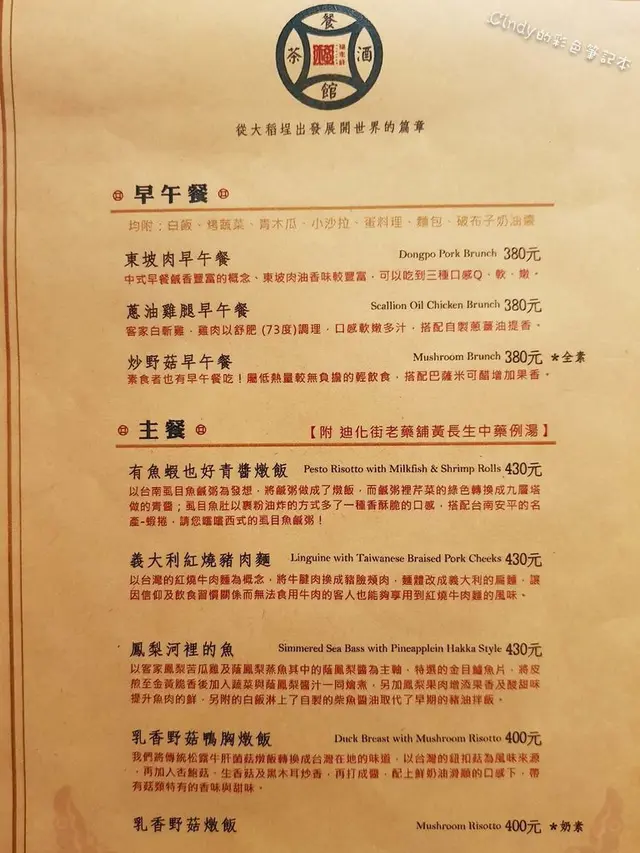 Cindy的彩色筆記本
餐
茶 酒
館
從大稻埕出發展開世界的篇章
早午餐
均附：白飯、烤蔬菜、青木瓜、小沙拉、蛋料理、麵包、破布子奶油醬
東坡肉早午餐 Dongpo Pork Brunch 380元
中式早餐鹹香豐富的概念、東坡肉油香味較豐富，可以吃到三種口感Q、軟、嫩。
蔥油雞腿早午餐 Scallion Oil Chicken Brunch 380元
客家白斬雞，雞肉以舒肥 (73度)調理，口感軟嫩多汁，搭配自製蔥薑油提香。
炒野菇早午餐 Mushroom Brunch 380元 *全素
素食者也有早午餐吃！屬低熱量較無負擔的輕飲食，搭配巴薩米可醋增加果香。
主餐 【附 迪化街老藥舖黃長生中藥例湯】
有魚蝦也好青醬燉飯 Pesto Risotto with Milkfish & Shrimp Rolls 430元
以台南虱目魚鹹粥為發想，將鹹粥做成了燉飯，而鹹粥裡芹菜的綠色轉換成九層塔
做的青醬；虱目魚肚以裹粉油炸的方式多了一種香酥脆的口感，搭配台南安平的名
產-蝦捲，請您嚐嚐西式的虱目魚鹹粥！
義大利紅燒豬肉麵 Linguine with Taiwanese Braised Pork Cheeks 430元
以台灣的紅燒牛肉麵為概念，將牛腱肉換成豬臉頰肉，麵體改成義大利的扁麵，讓
因信仰及飲食習慣關係而無法食用牛肉的客人也能夠享用到紅燒牛肉麵的風味。
鳳梨河裡的魚 Simmered Sea Bass with Pineapplein Hakka Style 430元
以客家鳳梨苦瓜雞及蔭鳳梨蒸魚其中的蔭鳳梨醬為主軸，特選的金目鱸魚片，將皮
煎至金黃脆香後加入蔬菜與蔭鳳梨醬汁一同燴煮，另加鳳梨果肉增添果香及酸甜味
提升魚肉的鮮，另附的白飯淋上了自製的柴魚醬油取代了早期的豬油拌飯。
乳香野菇鴨胸燉飯 Duck Breast with Mushroom Risotto 400元
我們將傳統松露牛肝菌菇燉飯轉換成台灣在地的味道，以台灣的鈕扣菇為風味來源
，再加入杏鮑菇、生香菇及黑木耳炒香，再打成醬，配上鮮奶油滑順的口感下，帶
有菇類特有的香味與甜味。
乳香野菇燉飯 Mushroom Risotto 400元 *奶素